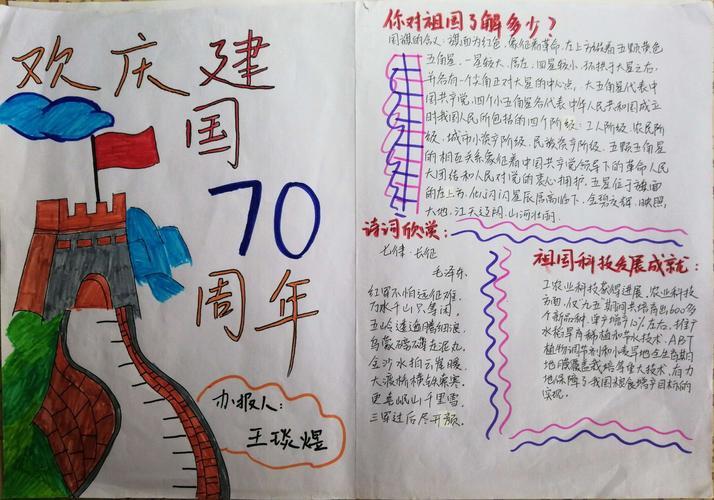 欢庆建
国
70
周年
办报人:
王琰煜
你对祖国了解多少?
国旗的含义:旗面为红色,象征着革命,左上方缀着五颗黄色
五角星,一星较大,居左,四星较小,环拱于大星之右,
并各有一个尖角正对大星的中心点,大五角星代表中
国共产党,四个小五角星各代表中华人民共和国成立
时我国人民所包括的四个阶级:工人阶级、农民阶
级、城市小资产阶级、民族资产阶级,五颗五角星
的相互关系象征着中国共产党领导下的革命人民
大团结和人民对党的衷心拥护,五星位于旗面
的左上方,似闪闪星辰居高临下,金碧交辉,映照
大地,江天辽阔,山河壮丽.
诗词欣赏:
七律·长征
毛泽东
红军不怕远征难,
万水千山只等闲,
五岭逶迤腾细浪,
乌蒙磅礴走泥丸,
金沙水拍云崖暖,
大渡桥横铁索寒,
更喜岷山千里雪,
三军过后尽开颜.
祖国科技发展成就:
1.农业科技蒙勃进展,农业科技
方面,仅九五期间共培育出600多
个新品种,单产增产12%左右,推广
水稻旱育稀植和节水技术,ABT
植物调节剂和小麦旱地全生育期
地膜覆盖栽培等重大技术,有力
地保障了我国粮食增产目标的
实现.